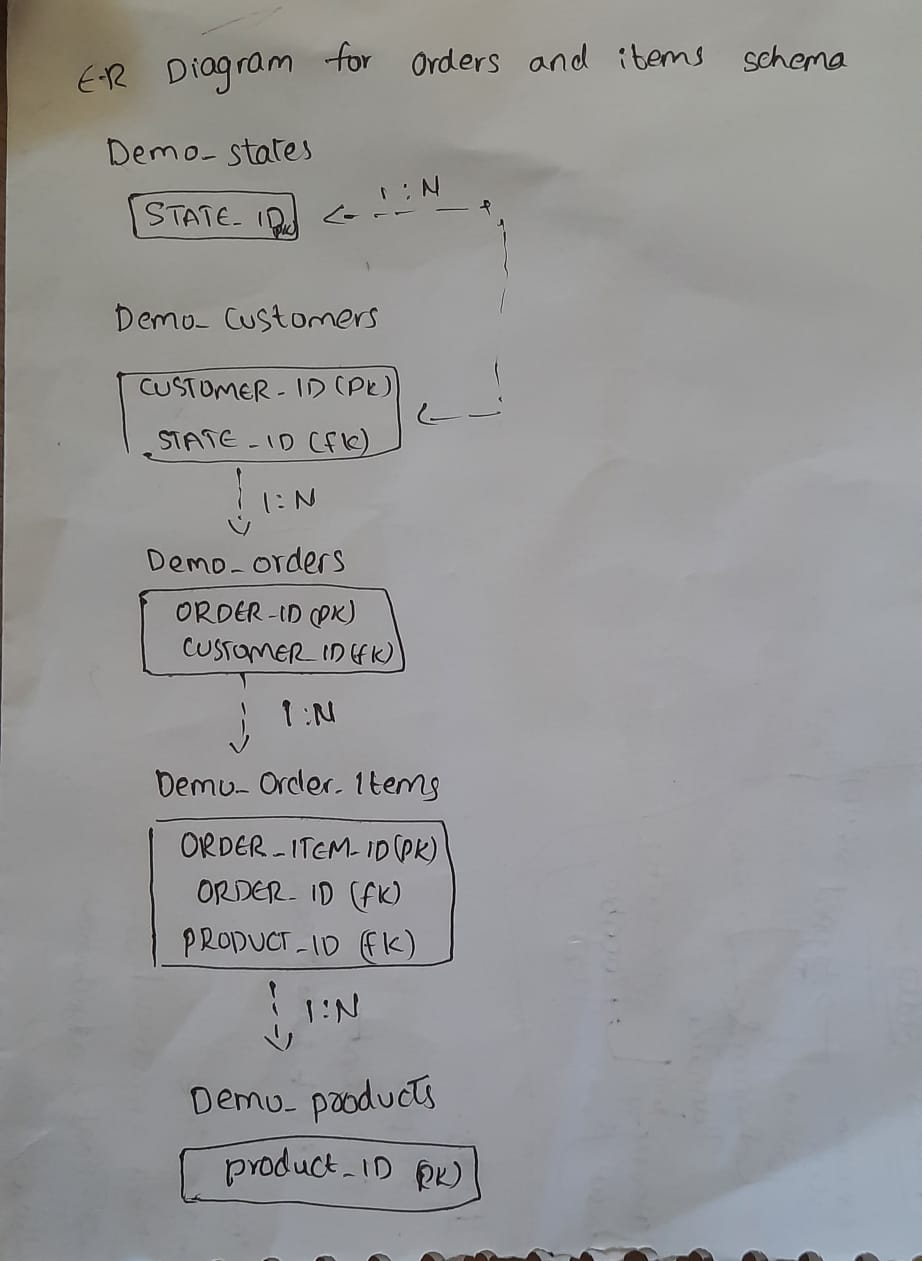 E-R Diagram for orders and items schema
Demo_states
STATE_ID pk
1:N
Demo_Customers
CUSTOMER_ID (PK)
STATE_ID (fk)
1:N
Demo_orders
ORDER_ID (PK)
CUSTOMER_ID (fK)
1:N
Demo_Order_Items
ORDER_ITEM_ID (PK)
ORDER_ID (fK)
PRODUCT_ID (fK)
1:N
Demo_products
product_ID (PK)